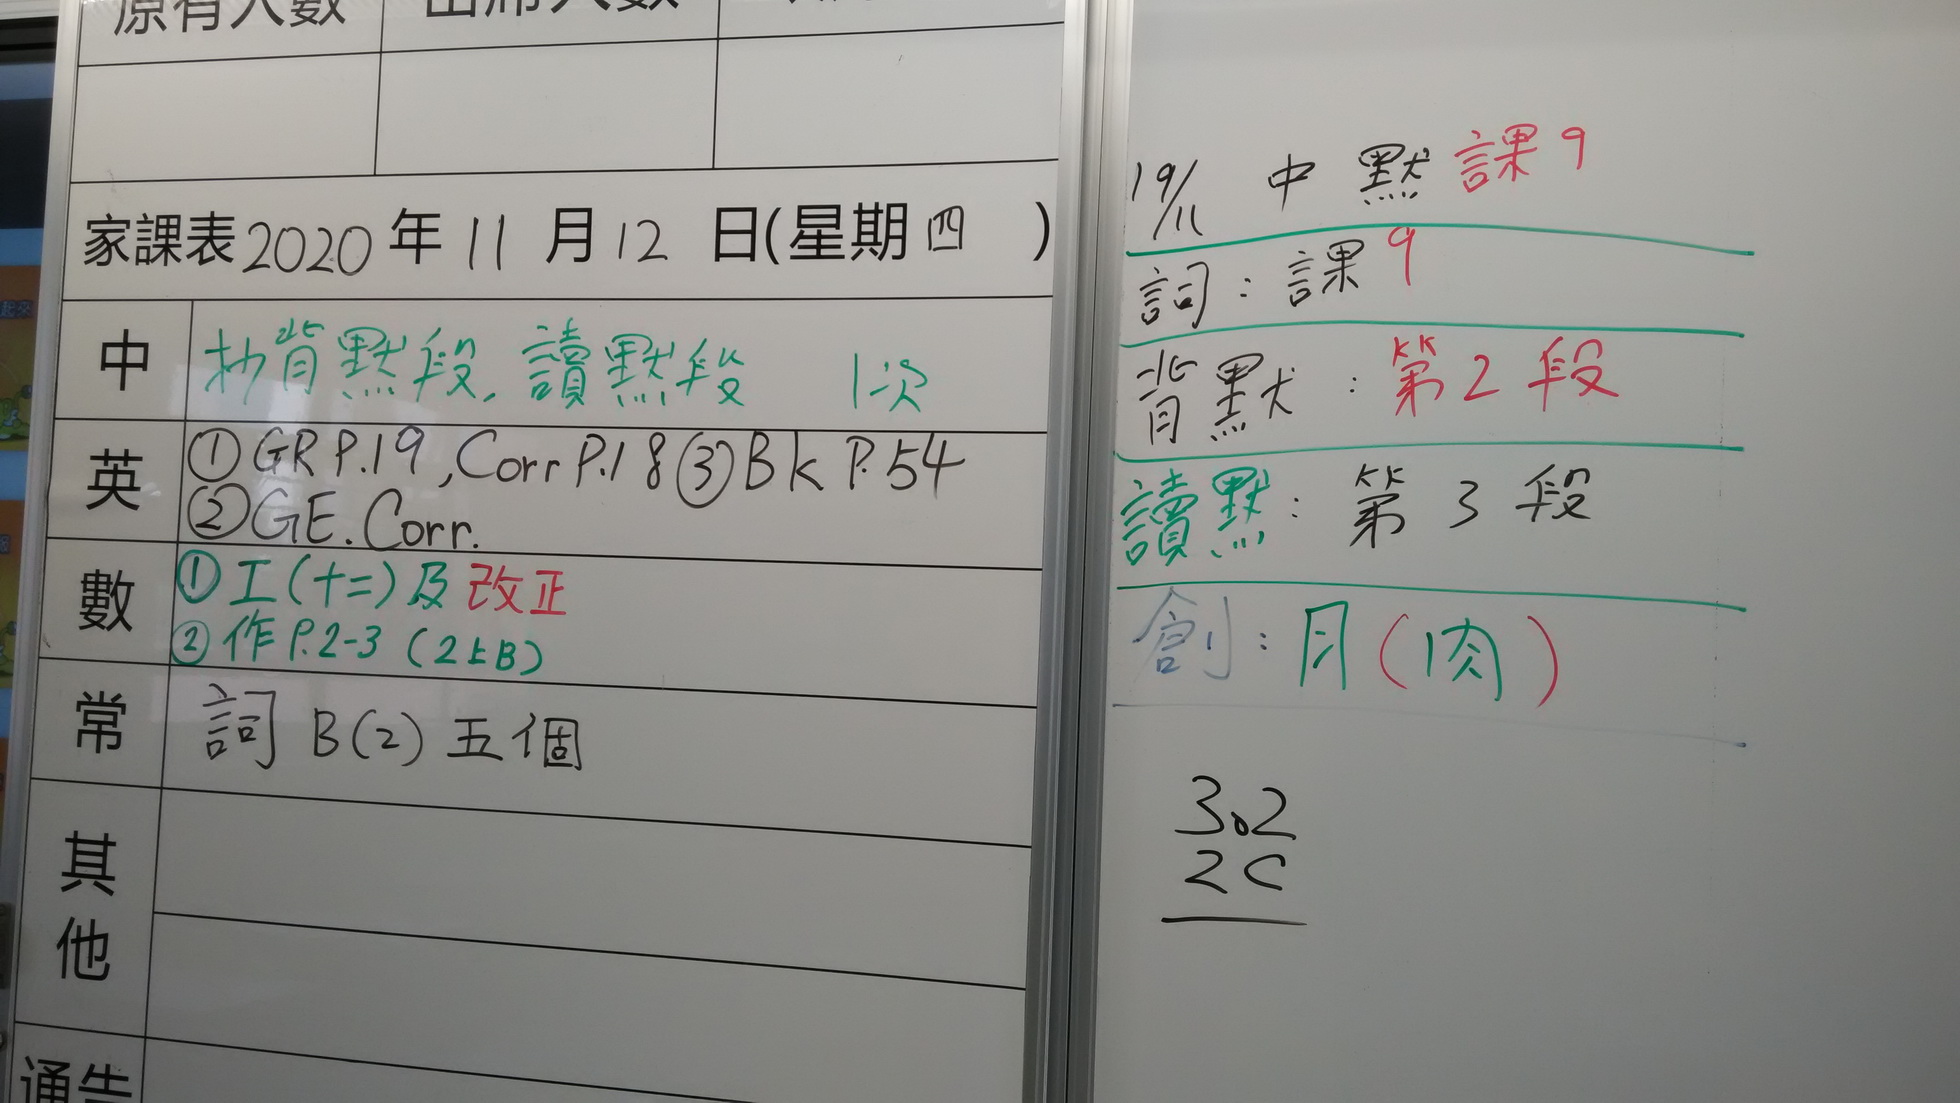 原有人數
出席人數
家課表2020年11月12日(星期四 )
中
抄背默段, 讀默段 1次
英
①GR P.19, Corr P.18 ③Bk P.54
②GE. Corr.
數
①工(十二)及改正
②作P.2-3 (2上B)
常
詞 B(2) 五個
其他
通告
19/11 中默 課9
詞：課9
背默：第2段
讀默：第3段
創：月(肉)
3.2
2C